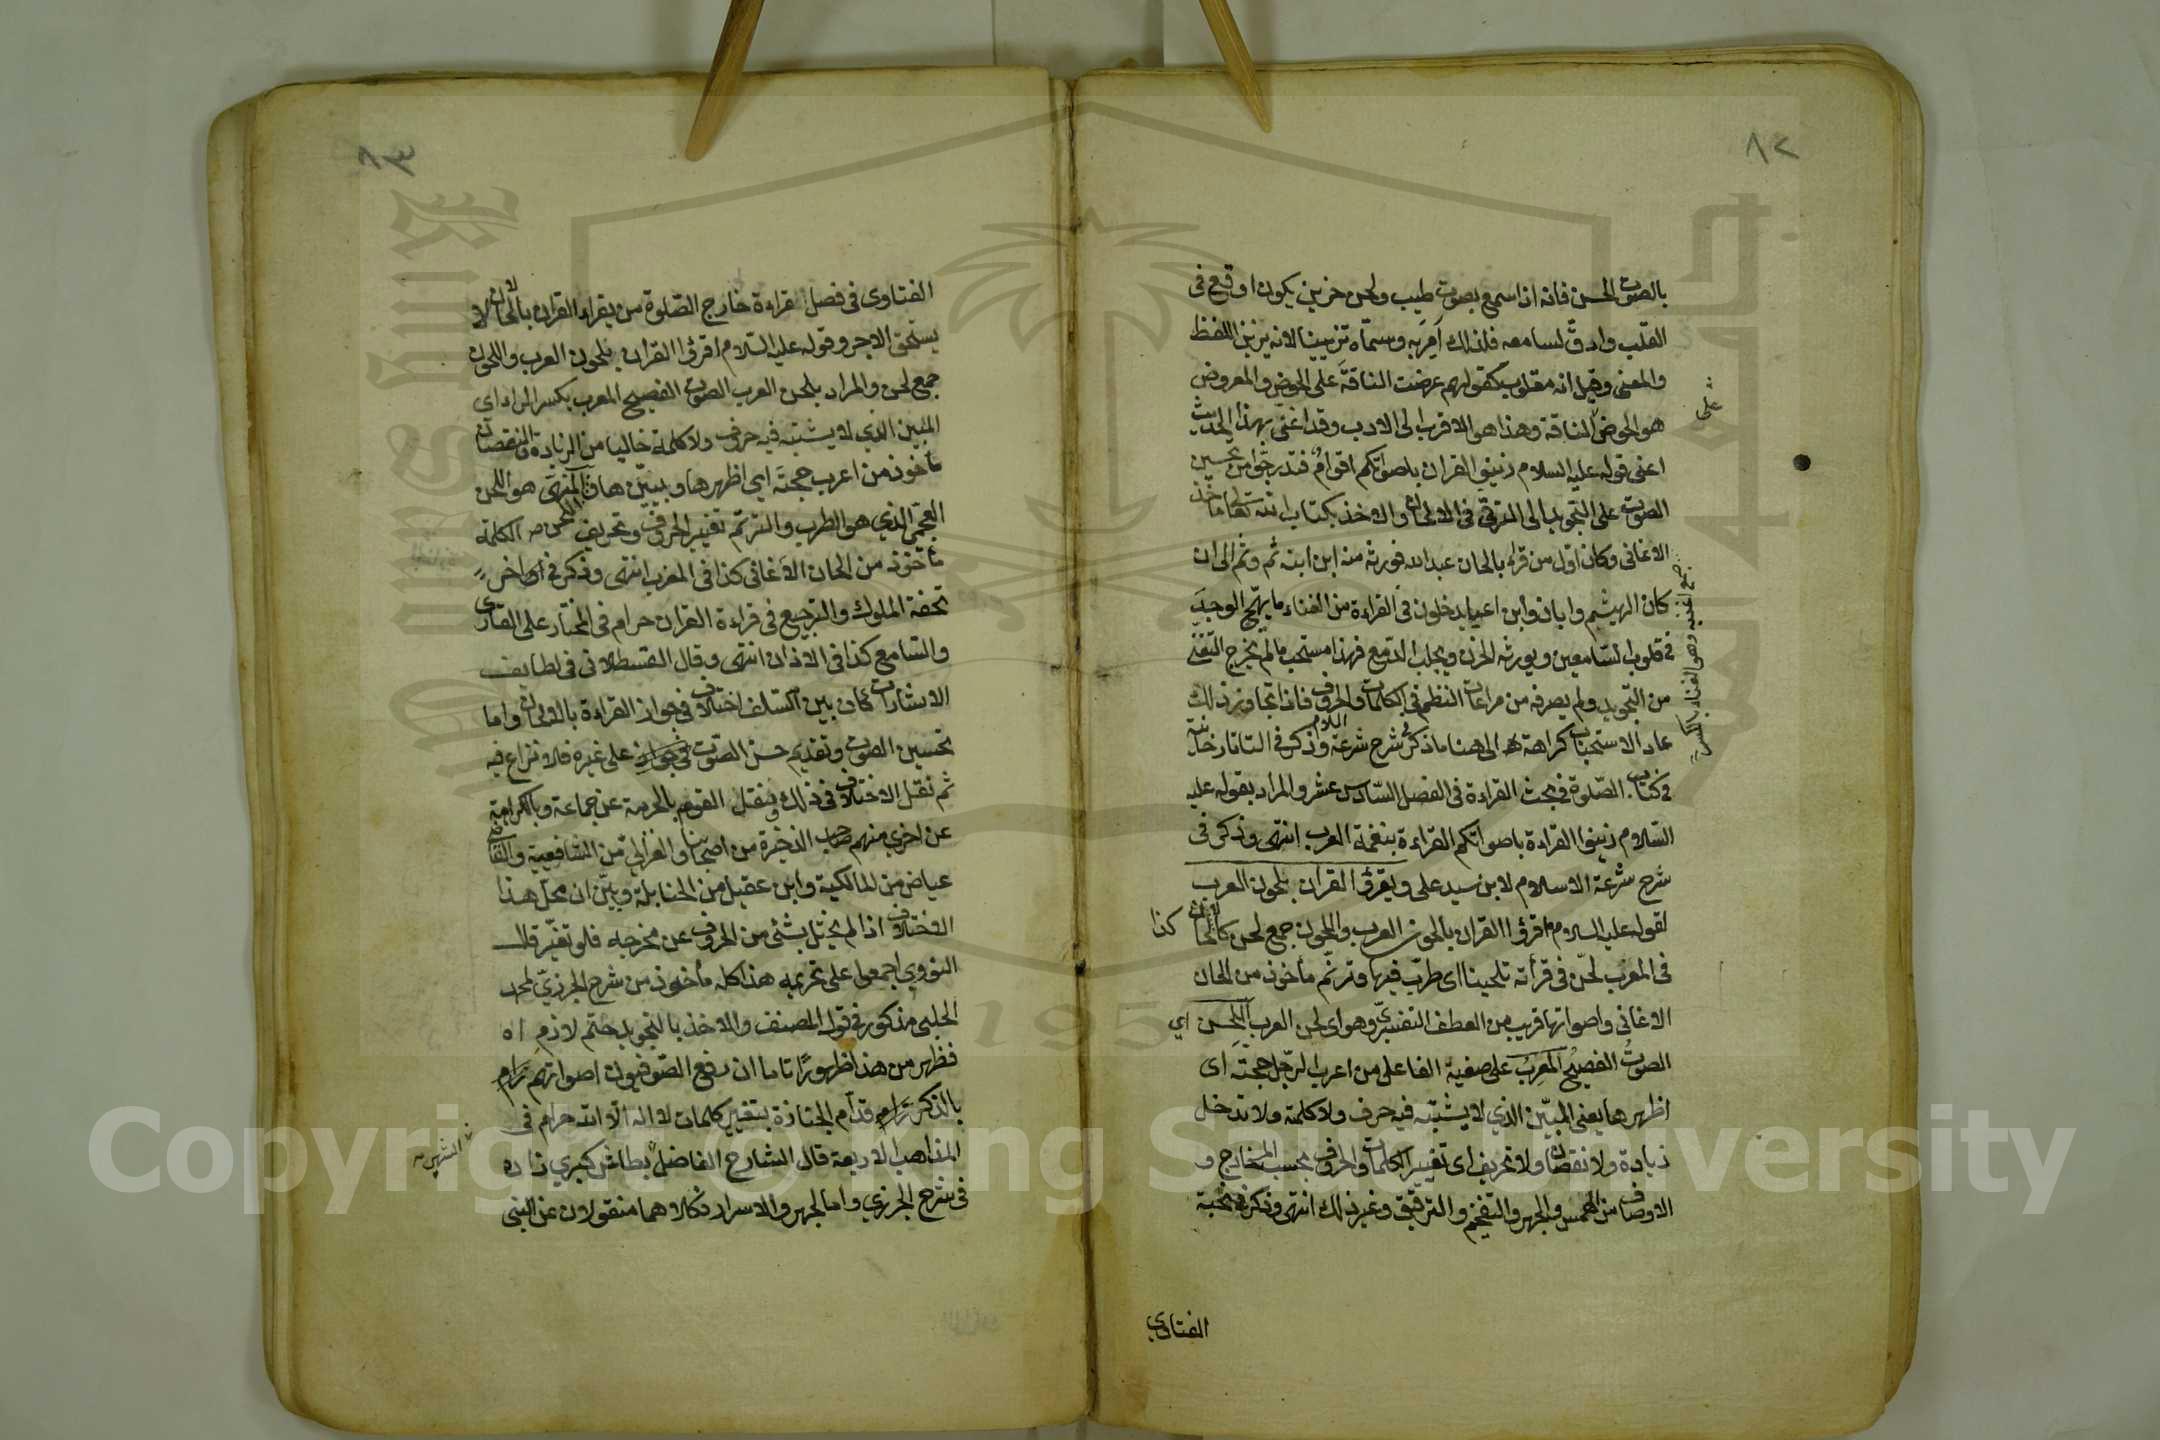 ٨٢
بالصوت الحسن فانه اذا سمع بصوت طيب ولحن حزين يكون اوقع فى
القلب وادقّ لسامعه فلذلك اُمِرَ به وسمّاه تزيينا لانه يزين اللفظ
والمعنى وقيل انه مقلوب كقولهم عرضت الناقة على الحوض والمعروض
هو الحوض الناقة وهذا هو الاقرب الى الادب وقد اغنى بهذا الحديث
على
اعنى قوله عليه السلام زينوا القران باصواتكم اقوامٌ فتدرجّوا من تحسين
الصوت على التجويد الى الترقى فى الالحان والاخذ بكتاب الله تعالى ماخذ
الاغانى وكان اول من قرا بالحان عبد الله فورثه منه ابن ابنه ثم وثم الى ان
كان الهيثم وابان وابن اعيا يدخلون فى القراءة من الغناء ما يهيّج الوجد
جمع اغنية وهو الغناء بالكسر
فى قلوب السّامعين ويورثه الحزن ويجلب الدّمع فهذا مستحب مالم يخرج التغنى
من التجويد ولم يصرفه من مراعات النظم فى الكلمات والحروف فاذا تجاوز ذلك
عاد الاستحباب كراهة الى هنا ما ذكر فى شرح شرعة الاسلام وذكر فى التاتارخانية
فى كتاب الصّلوة فى بحث القراءة فى الفصل السّادس عشر والمراد بقوله عليه
السّلام زينوا القراءة باصواتكم القراءة بنغمة العرب انتهى وذكر فى
شرح شرعة الاسلام لابن سيد على ويقرؤا القران بلحون العرب
لقوله عليه السلام اقرؤا القران بالحون العرب واللحون جمع لحن كالالحان كذا
فى المغرب لحّن فى قرأته تلحينا اى طرّب فيها وترنّم مأخوذ من الحان
الاغانى واصواتها قريب من العطف التفسيرىّ وهو اى لحن العرب اللحن اي
الصوتُ الفصيحُ المعرِبُ على صفية الفاعل من اعرب الرّجل حجتَه اى
اظهرها يعنى المبيّن الذي لا يشبته فيه حرف ولا كلمة ولا تدخل
زيادة ولا نقصان ولا تحريف اى تغيير الكلمات والحروف بحسب المخارج و
الاوصاف من الهمس والجهر والتفخيم والترقيق وغير ذلك انتهى وذكر فى نخبة
الفتاوي
٨٣
الفتاوى فى فصل قراءة خارج الصّلوة من يقراء القران بالالحان لا
يستحق الاجر وقوله عليه السّلام اقرؤا القران بلحون العرب واللحون
جمع لحن والمراد بلحن العرب الصوت الفصيح المعرب بكسر الراء اى
المبين الذي لا يشبته فيه حروف ولا كلمة خاليا من الزيادة والنقصان
مأخوذ من اعرب حجته اي اظهرها وبيّنها فالمنهى هو اللحن
العجمى الذي هو الطرب والترنّم تغيير الحروف وتحريف الكلمة
مأخوذ من الحان الاغانى كذا فى المغرب انتهى وذكر فى اواخر
تحفة الملوك والترجيع فى قراءة القران حرام فى المختار على القارى
والسّامع كذا فى الاذان انتهى وقال القسطلانى فى لطايف
الاشارات كان بين السّلف اختلاف فى جواز القراءة بالالحان واما
تحسين الصوت وتقديم حسن الصّوت على غيره فلا نزاع فيه
ثم نقل الاختلاف فى ذلك ونقل القوم بالحرمة عن جماعة وبالكراهة
عن اخرى منهم صاحب الذخيرة من اصحابنا والغزالى من الشافعية والقاضى
عياض من المالكية وابن عقيل من الحنابلة وبيّن ان محلّ هذا
الاختلاف اذا لم يختل بشئ من الحروف عن مخرجه فلو تغيّر قال
النووي اجمعوا على تحريمه هذا كله مأخوذ من شرح الجزريّ لمحمد
الحلبى مذكور فى قول المصنف والاخذ بالتجويد حتم لازم اه
فظهر من هذا ظهورًا تاما ان رفع الصّوفيون اصواتهم
بالذكر قدّام الجنازة بتغيير كلمات لا اله الّا الله حرام فى
المذاهب الاربعة قال الشارح الفاضل بطاش كبري زاده
الشهير
فى شرح الجزري واما الجهر والاسرار فكلاهما منقولان عن النبى